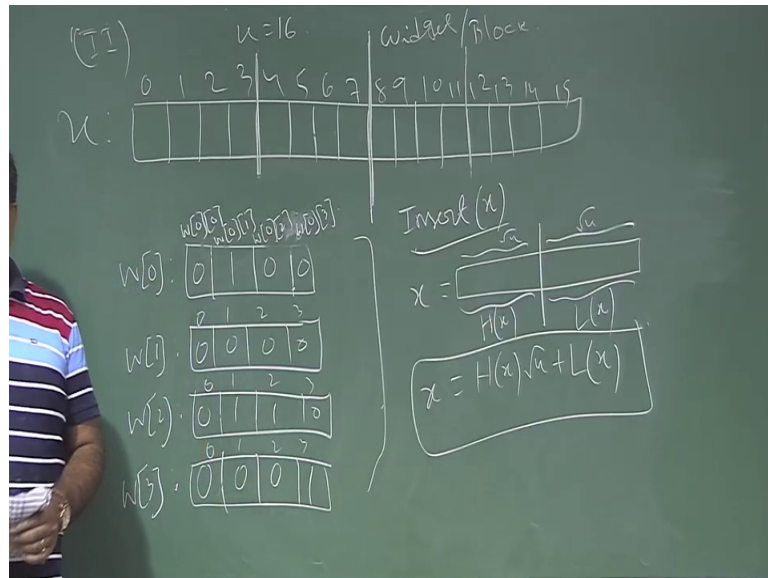 (II) u=16 Widget/Block
0 1 2 3 4 5 6 7 8 9 10 11 12 13 14 15
u:
W[0][0] W[0][1] W[0][2] W[0][3]
W[0]: 0 1 0 0
0 1 2 3
W[1]: 0 0 0 0
0 1 2 3
W[2]: 0 1 1 0
0 1 2 3
W[3]: 0 0 0 1
Insert(x)
√u √u
x =
H(x) L(x)
x = H(x)√u + L(x)